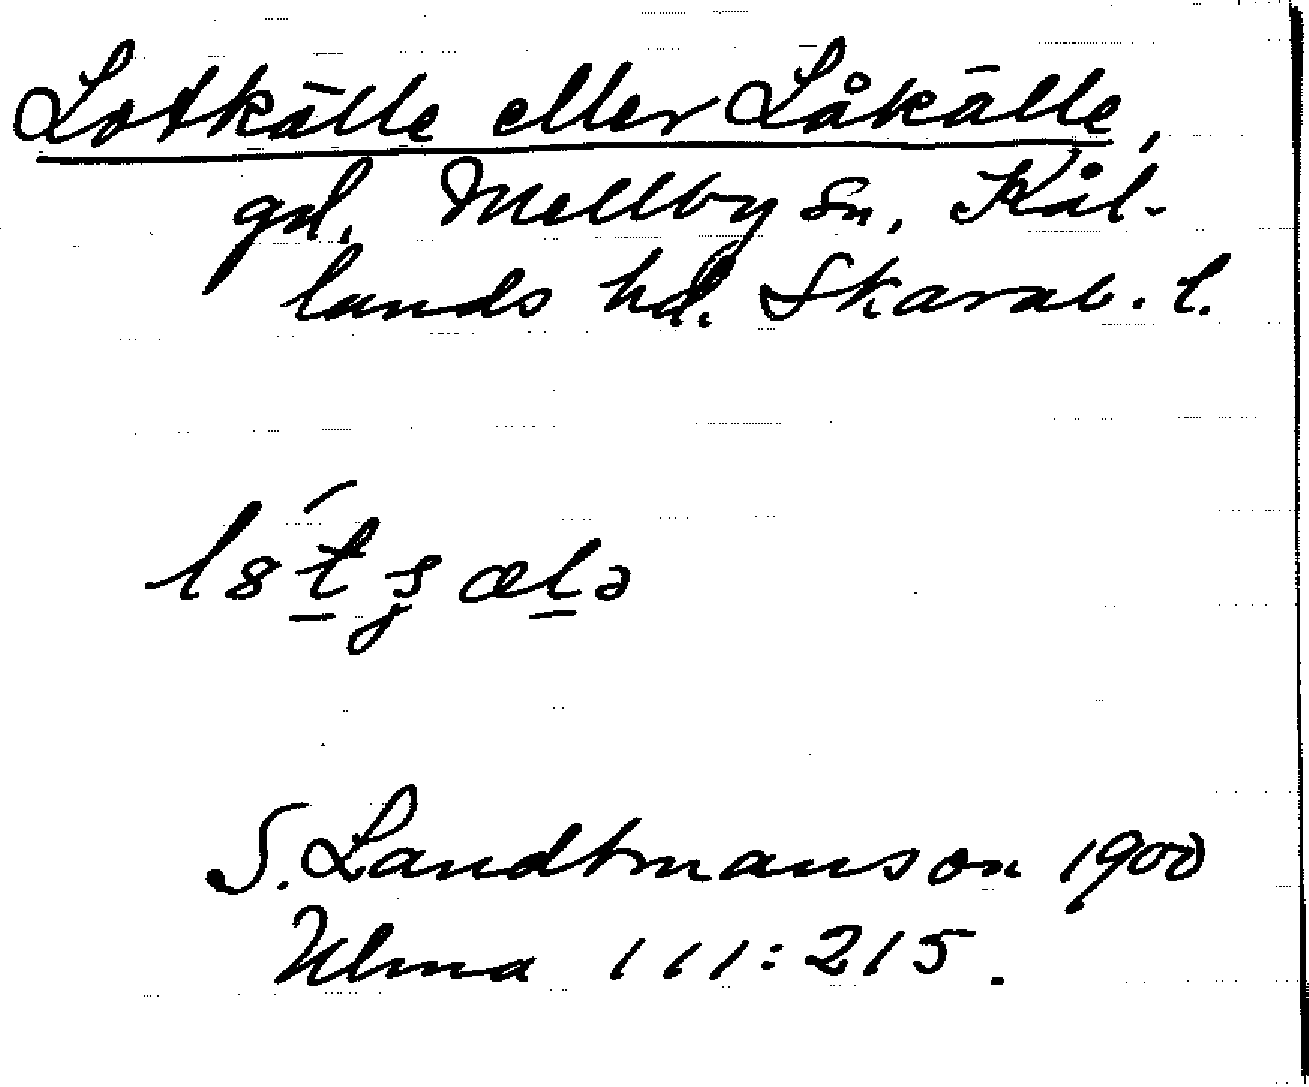 Lotkälle eller Låkälle,
gd. Mellby sn, Kål-
lands hd. Skarab. l.
S. Landtmanson 1900
Ulma 111:215.